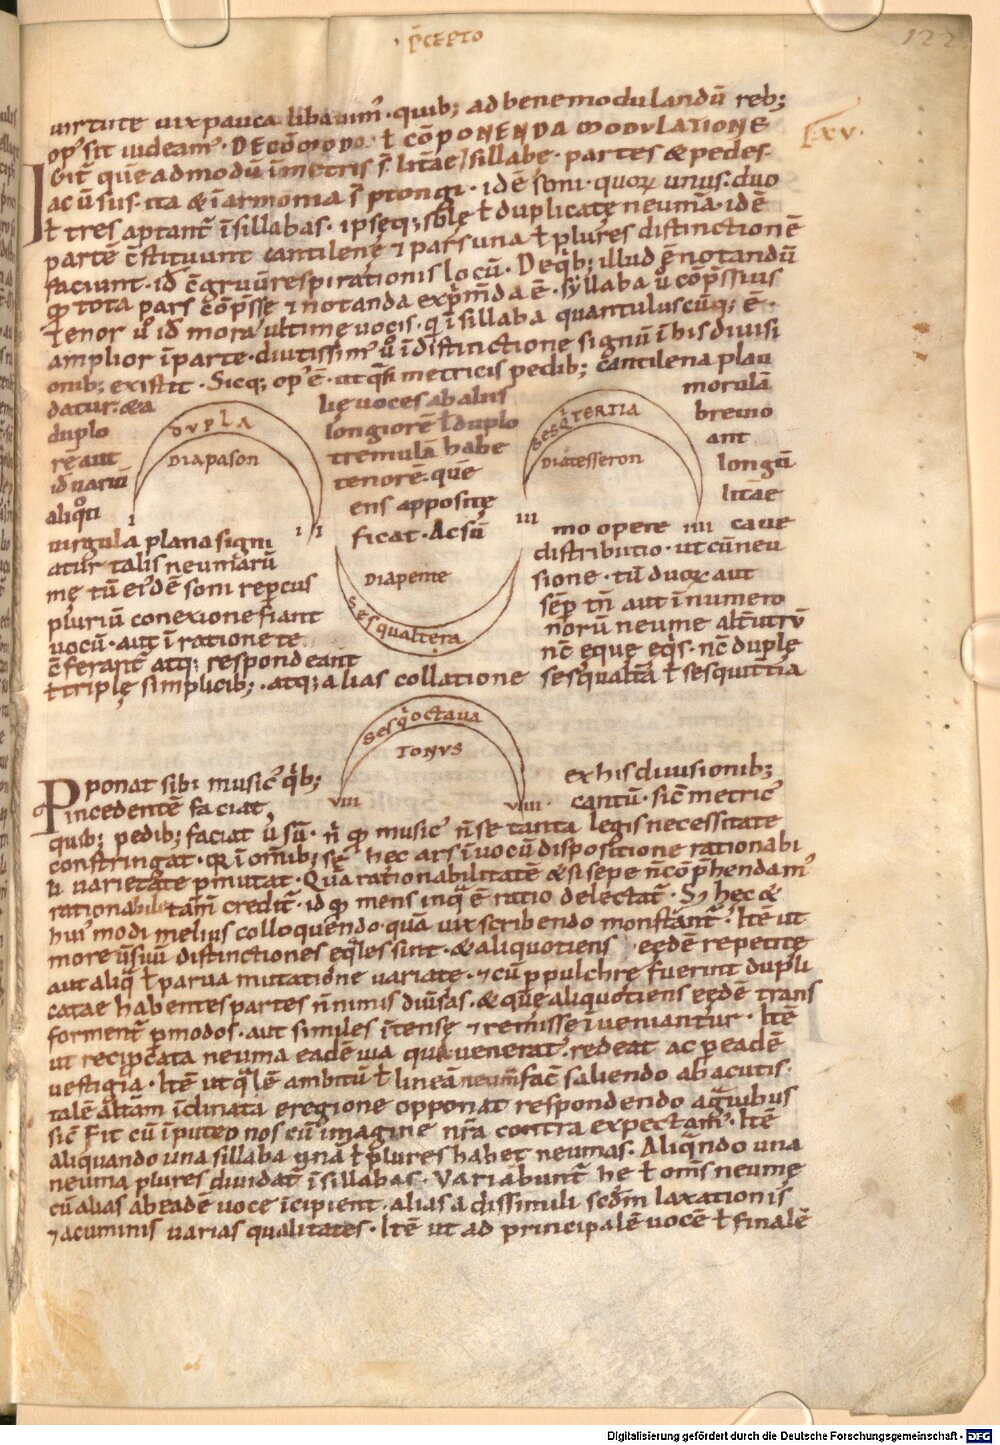 p̄cepto
122
uirtute uix pauca libauim᷒. quib; ad bene modulandū reb;
op᷒ sit uideam᷒. DE cōmodo. ł cōPONENDA MODVLATIONE
XV.
Igit̄ quēadmodū ī metris s̄ litt̄ae / sillabe. partes & pedes.
ac ūsus. ita & ī armonia s̄ ptongi. idē soni. quoꝝ unus. duo
ł tres aptant̄ ī sillabas. ipsęq; sole ł duplicatę neuma. idē
partē c̄stituunt cantilenę ⁊ pars una ł plures distinctionē
faciunt. id c̄gruū respirationis locū. De q̄b; illud ē notandū
ꝙ tota pars cōp̄sse ⁊ notanda exp̄mda ē. syllaba u̓ cōp̄ssius
tenor u̓ id mora ultime uocis. q̄ ī sillaba quantuluscūq; ē.
amplior ī parte. diutissim᷒ u̓ ī distinctione signū ī his diuisi
onib; existit. Sicq; op᷒ ē. ut q̄si metricis pedib; cantilena plau
datur. & a
duplo
rē aut
id uariū
aliq̊ti
uirgula plana signi
atur talis neumarū
mę tū ei᷒dē soni rep̄cus
pluriū conexione fiant
uocū. aut ī ratione te
c̄ferant̄ atq; respondeant
ł triplę simplicib;. atq; alias collatione
DVPLA
DIAPASON
I
II
lię uoces ab aliis
longiorē ł duplo
tremulā habe
tenorē. quē
ens appositę
ficat. Ac sū
DIAPENTE
Sesqualtera
SESQ̇TERTIA
DIATESSERON
III
IIII
morulā
breuio
ant
longū
litt̄ae
mo opere
caue
distributio. ut cū neu
sione. tū duoꝝ aut
sēp tn̄ aut ī numero
norū neume alt̄utrū
nc̄ ęquę eq̇s. nc̄ duplę
sesqualt̄a ł sesquit̄tia
Sesq̇octaua
TONVS
VIII
VIIII
Pponat sibi music᷒ q̇b;
incedentē faciat
ex his diuisionib;
cantū. sic̄ metric᷒
quib; pedib; faciat ūsū. n̄ ꝙ music᷒ n̄ se tanta legis necessitate
constringat. q̄ ī om̄ib; sę hec ars ī uocū dispositione rationabi
li uarietate p̄mutat. Quā rationabilitatē & si sepe n̄ cōp̄hendam᷒
rationabile tam̄ credit̄. id ꝙ mens inq̄ ē ratio delectat̄. S; hęc &
hui᷒modi melius colloquendo quā uix scribendo monst̄ant̄. Itē ut
more ūsuū distinctiones eq̄les sint. & aliquotiens eędē repetitę
aut aliq̄ ł parua mutatione uariate. ⁊ cū p̄pulchrę fuerint dupli
catae habentes partes n̄ nimis diūsas. & quę aliquotiens eędē trans
forment̄ p̄ modos. aut similes ītensę ⁊ remissę īueniantur. Itē
ut recip̄cata neuma eadē uia qua uenerat. redeat ac p̄ eadē
uestigia. Itē ut q̄lē ambitū ł lineā neum̄ fac̄ saliendo ab acutis.
talē altam̄ īclinata eregione opponat respondendo a grauibus
sic̄ fit cū ī puteo nos cū imagine nr̄a contra expectam᷒. Itē
aliquando una sillaba una ł plures habet neumas. Aliq̄ndo una
neuma plures diuidat̄ ī sillabas. Variabunt̄ he ł om̄s neume
cū alias ab eadē uoce īcipient. alias a dissimili scd̄m laxationis
⁊ acuminis uarias qualitates. Itē ut ad principalē uocē ł finalē
Digitalisierung gefördert durch die Deutsche Forschungsgemeinschaft - DFG